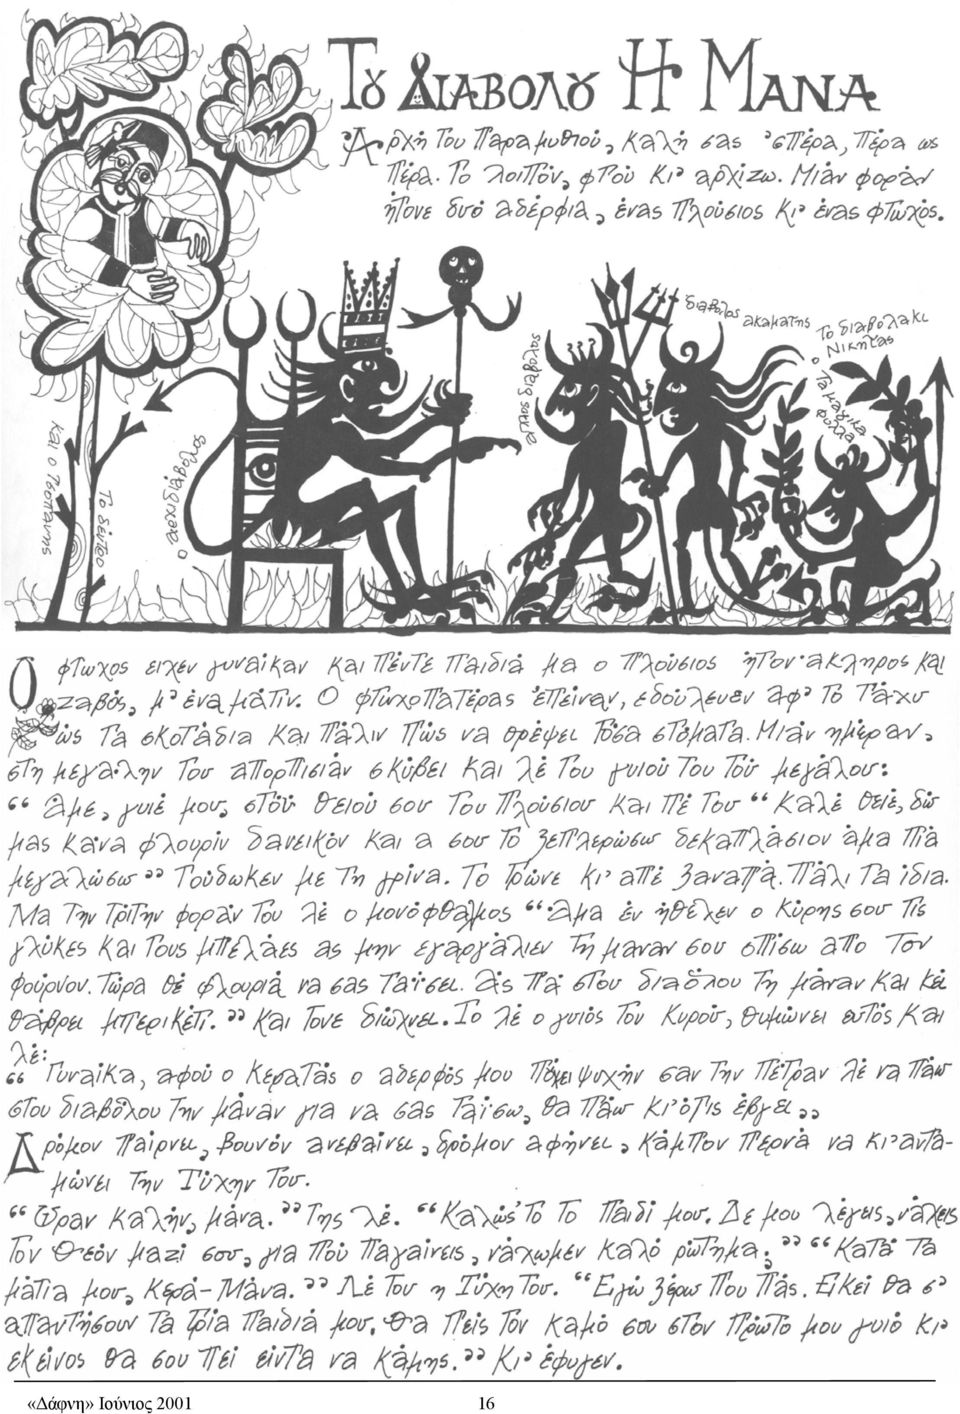 Του Διαβόλου Η Μάνα
Αρχή Του Παραμυθιού, καλή σας 'σπέρα, πέρα ως
Πέρα. Το λοιπόν, φτού κι' αρχίζω. Μιάν φοράν
ήτονε δυό αδέρφια, ένας Πλούσιος κι' ένας φτωχός.
διάβολος ακαμάτης
Το διαβολάκι
ο Νικήτας
Τα μαγικά
φύλλα
διάβολος
ο αρχιδιάβολος
Το δέντρο
και ο Τσοπάνης
Ο φτωχός είχεν γυναίκαν και πέντε παιδιά μα ο Πλούσιος ήτον άκληρος και
ζαβός, μ' ένα μάτιν. Ο φτωχοπατέρας επείναν, εδούλευεν αφ' το τάχυ
ώς τα σκοτάδια και πάλιν πώς να θρέψει τόσα στόματα. Μιάν ημέραν,
στη μεγάλην του απορπισιάν σκύβει και λέ του γυιού του του μεγάλου:
“ Άμε, γυιέ μου, στου θειού σου του Πλούσιου και πέ του “ Καλέ θειέ, δώ
μας κάνα φλουρίν δανεικόν και α σου το ξεπλερώσω δεκαπλάσιον άμα πιά
μεγαλώσω ” Τούδωκεν με τη γρίνα. Το τρώνε κι' απέ ξαναπά. Πάλι τα ίδια.
Μα την τρίτην φοράν του λέ ο μονόφθαλμος “ Άμα έν ήθελεν ο κύρης σου τις
γλύκες και τους μπελάες ας μην εγαργάλιεν τη μάναν σου οπίσω απο τον
φούρνον. Τώρα θέ φλουριά να σας ταΐσει. Ας πά στου διαόλου τη μάναν και κεί
θάβρει μπερικέτι. ” Και τονε διώχνει. Το λέ ο γυιός του κυρού, θυμώνει ευτός και
λέ:
“ Γυναίκα, αφού ο κερατάς ο αδερφός μου πόχει ψυχήν σαν την πέτραν λέ να πάω
στου διαβόλου την μάναν για να σας ταΐσω, θα πάω κι' ό,τις έβγει ”
Δρόμον παίρνει, βουνόν ανεβαίνει, δρόμον αφήνει, κάμπον περνά να κι' αντα-
μώνει την Τύχην του.
“ Ώραν καλήν, μάνα. ” Της λέ. “ Καλώς το το παιδί μου. Δε μου λέγεις, νάχεις
τον Θεόν μαζί σου, για πού παγαίνεις, νάχωμεν καλό ρώτημα; ” “ Κατά τα
μάτια μου, Κερά-Μάνα. ” Λέ του η Τύχη του. “ Εγιώ ξέρω που πάς. Εκεί θα σ'
απαντήσουν τα τρία παιδιά μου. Θα πείς τον καμό σου στον πρώτο μου γυιό κι'
εκείνος θα σου πεί είντα να κάμης. ” Κι' έφυγεν.
«Δάφνη» Ιούνιος 2001 16